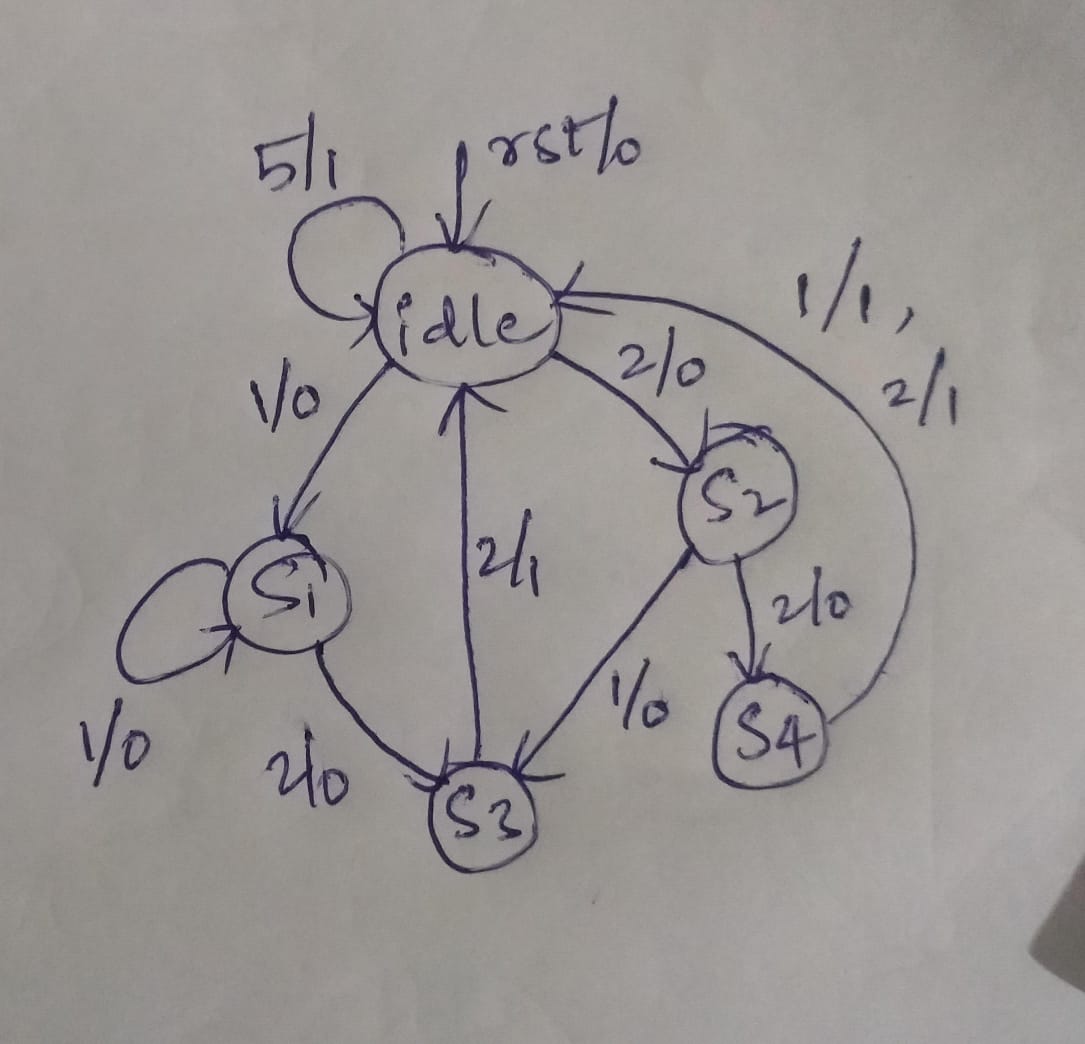 5/1
rst/0
idle
1/1,
2/1
2/0
1/0
S2
2/1
S1
2/0
1/0
S4
1/0
2/0
S3